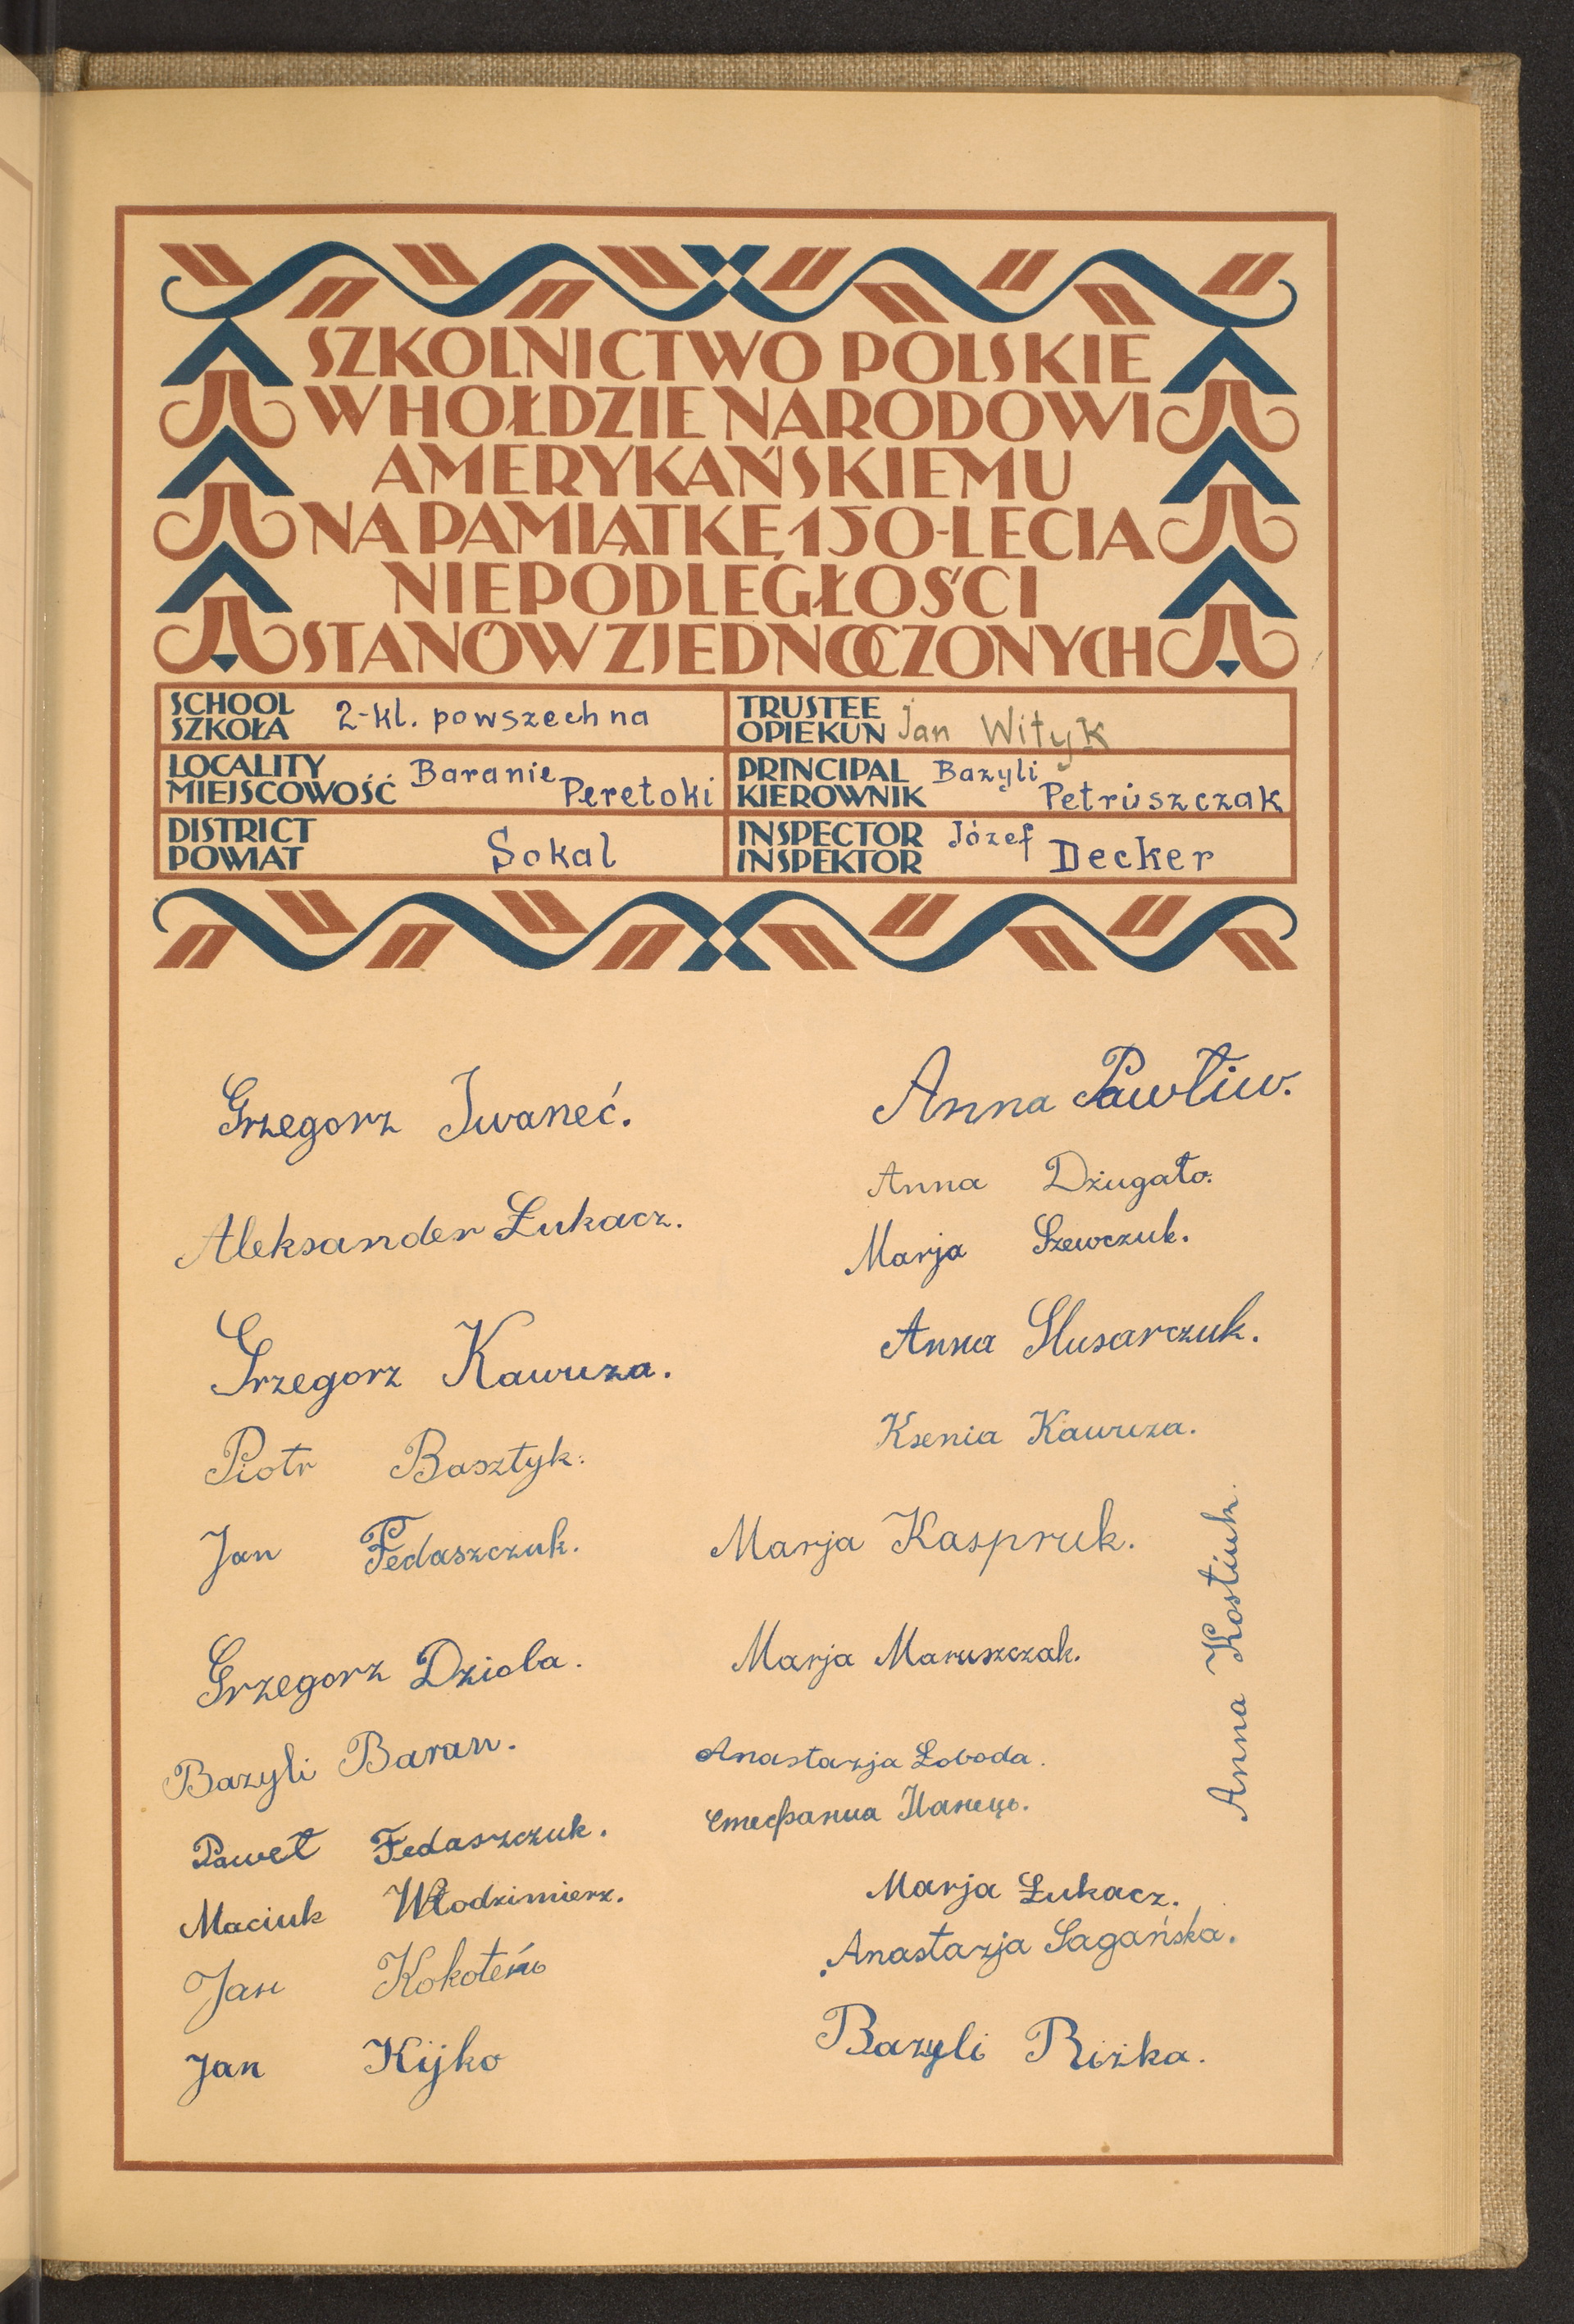 SZKOLNICTWO POLSKIE
W HOŁDZIE NARODOWI
AMERYKAŃSKIEMU
NA PAMIĄTKĘ 150-LECIA
NIEPODLEGŁOŚCI
STANÓW ZJEDNOCZONYCH
SCHOOL
SZKOŁA 2-kl. powszechna
TRUSTEE
OPIEKUN Jan Wityk
LOCALITY
MIEJSCOWOŚĆ Baranie Peretoki
PRINCIPAL
KIEROWNIK Bazyli Petruszczak
DISTRICT
POWIAT Sokal
INSPECTOR
INSPEKTOR Józef Decker
Grzegorz Iwaneć.
Aleksander Łukacz.
Grzegorz Kawuza.
Piotr Basztyk.
Jan Fedaszczuk.
Grzegorz Dzioba.
Bazyli Baran.
Paweł Fedaszczuk.
Maciuk Włodzimierz.
Jan
Jan Kijko
Anna Pawliw.
Anna Dziugało.
Marja Szewczuk.
Anna Slusarczuk.
Ksenia Kawuza.
Marja Kaspruk.
Marja Maruszczak.
Anastazja Łoboda.
Стефания
Marja Łukacz.
Anastazja Sagańska.
Bazyli Riżka.
Anna Kostiuk.